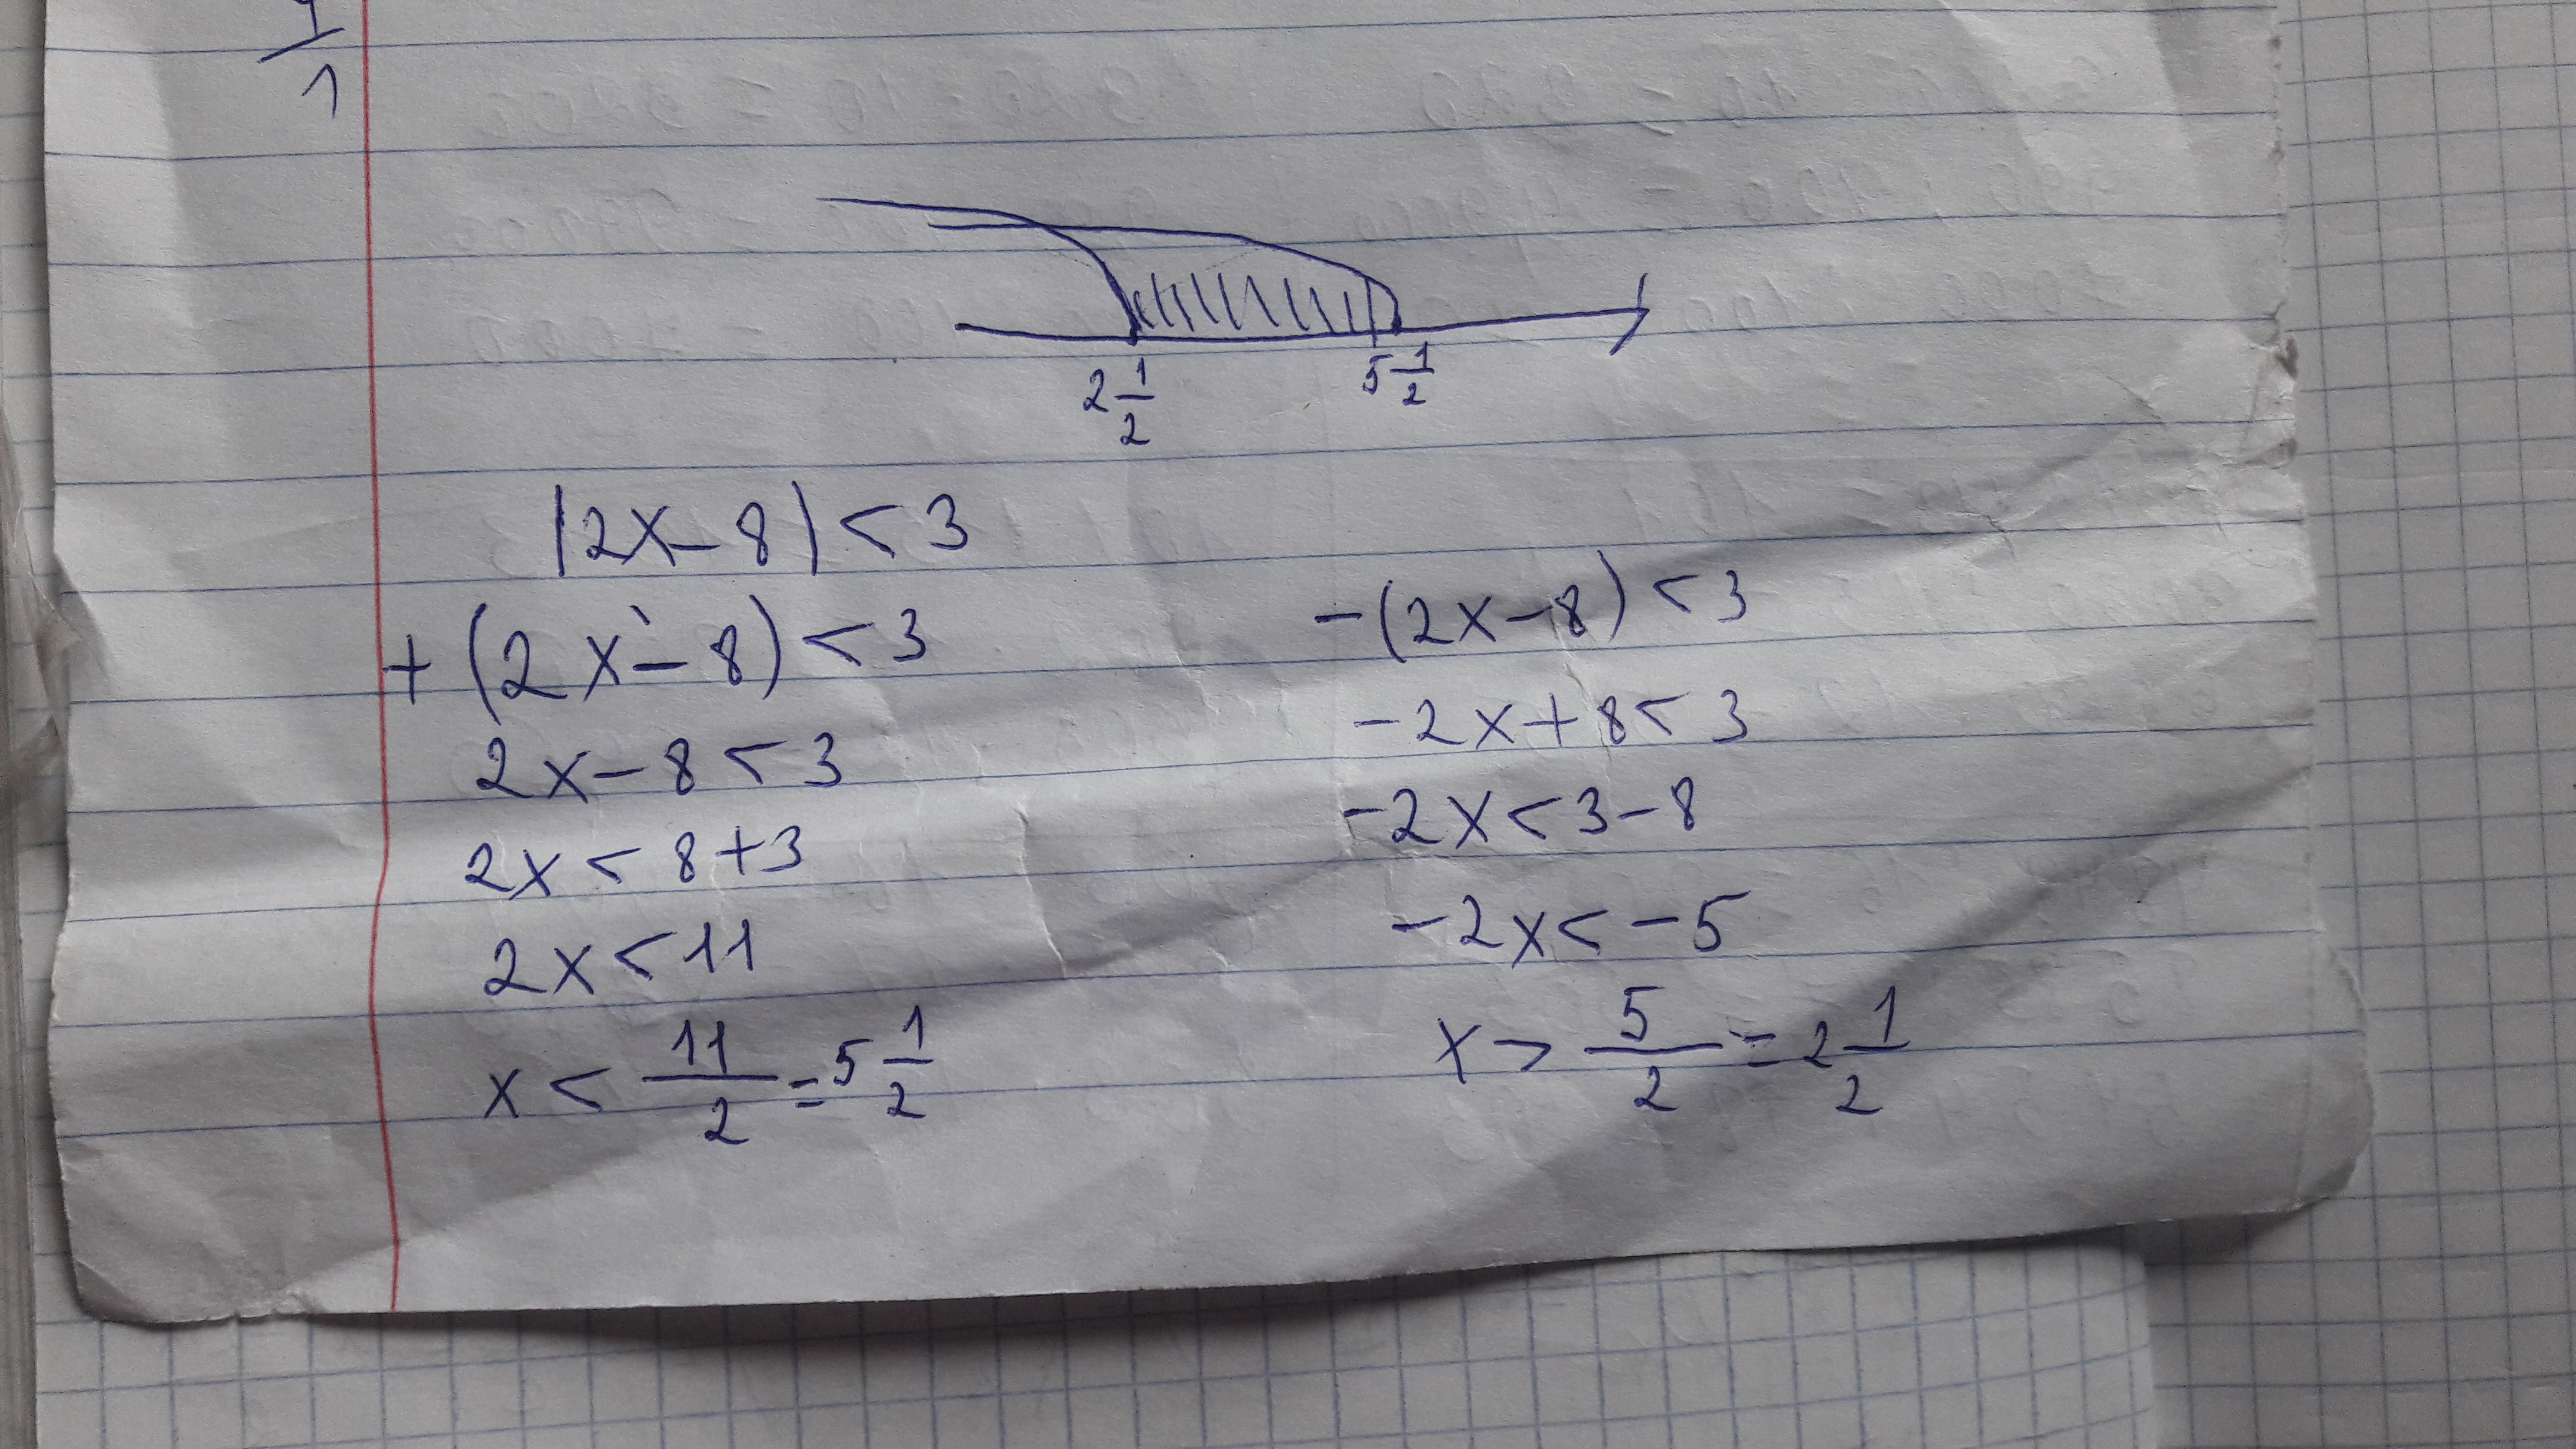 1
2 1/2 5 1/2
|2x-8| < 3
+ (2x-8) < 3
-(2x-8) < 3
2x-8 < 3
-2x+8 < 3
2x < 8+3
-2x < 3-8
2x < 11
-2x < -5
x < 11/2 = 5 1/2
x > 5/2 = 2 1/2